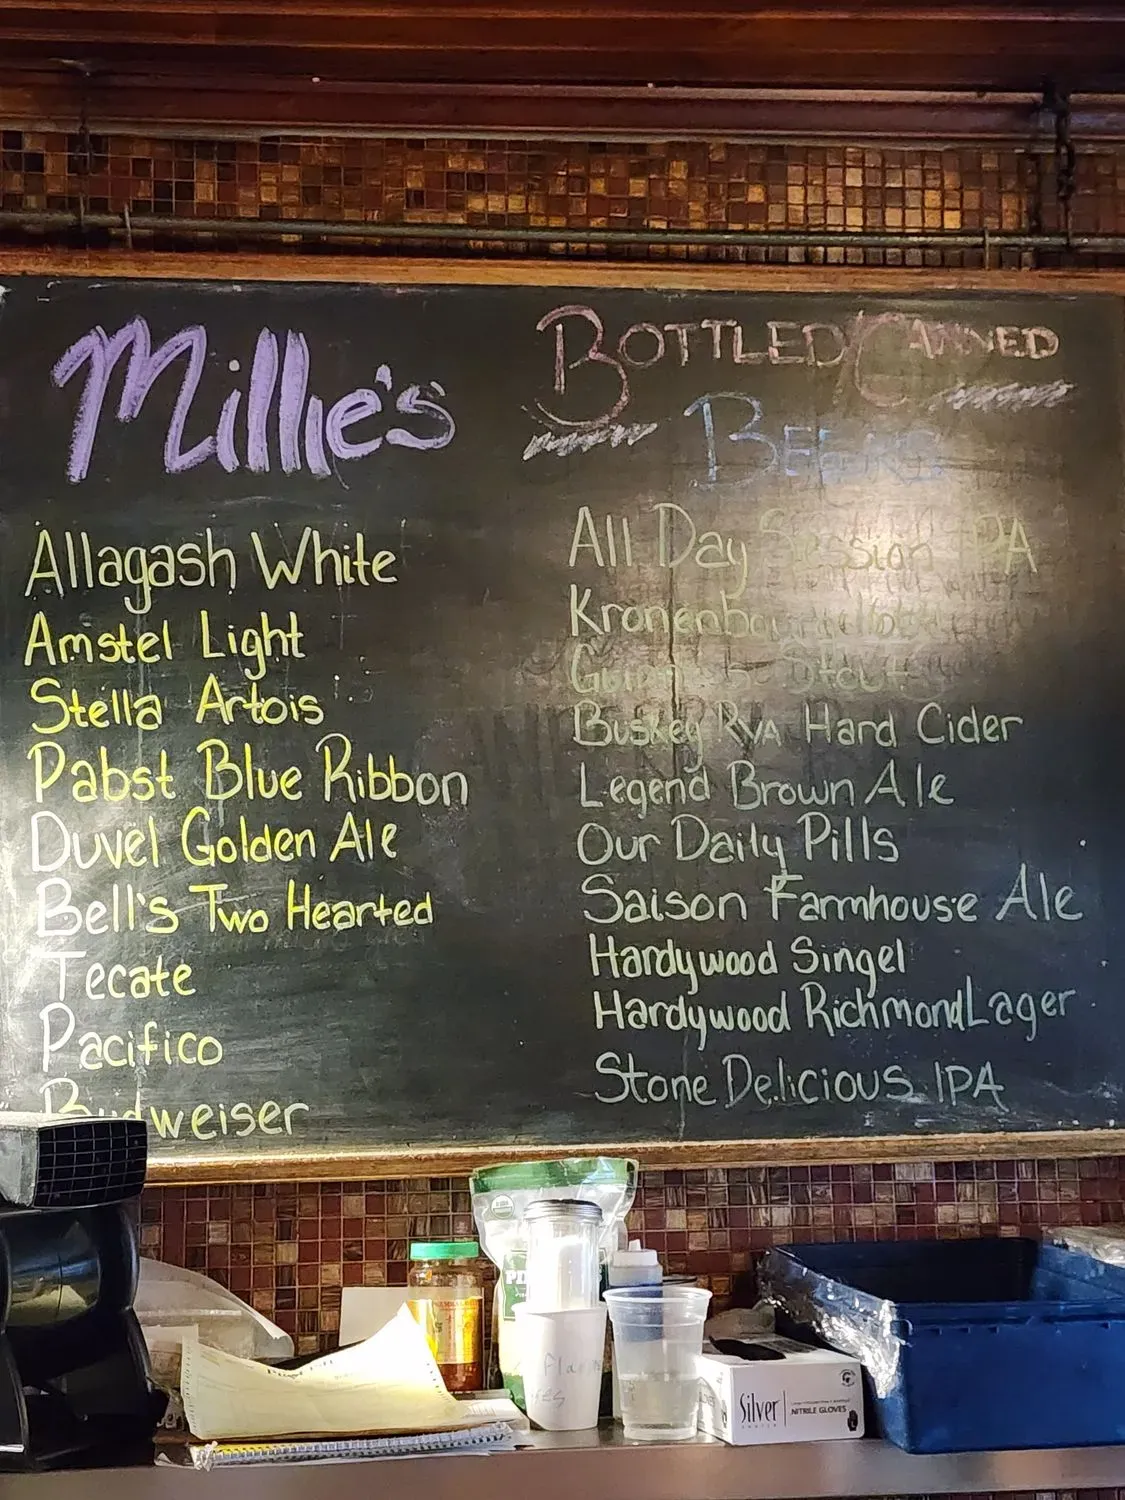 Millie's
Allagash White
Amstel Light
Stella Artois
Pabst Blue Ribbon
Duvel Golden Ale
Bell's Two Hearted
Tecate
Pacifico
Budweiser
BOTTLED/CANNED
BEERS
All Day Session IPA
Kronenbourg
Guinness Stout
Buskey RVA Hard Cider
Legend Brown Ale
Our Daily Pills
Saison Farmhouse Ale
Hardywood Singel
Hardywood Richmond Lager
Stone Delicious IPA
Silver
NITRILE GLOVES